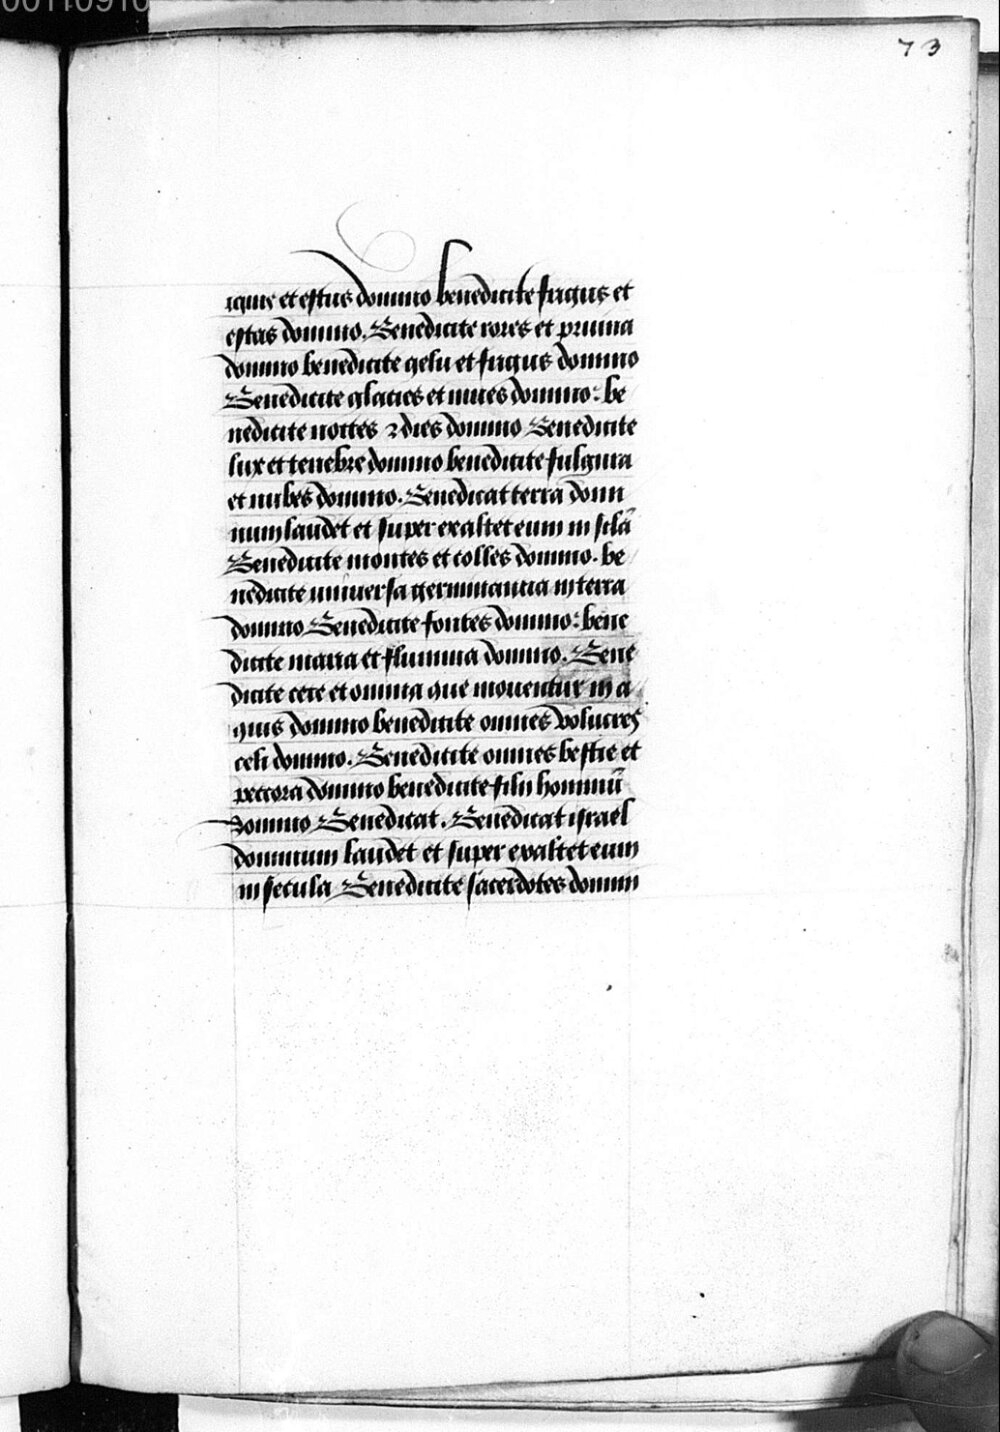 73
ignis et estus domino benedicite frigus et
estas domino. Benedicite rores et pruina
domino benedicite gelu et frigus domino
Benedicite glacies et nives domino: be
nedicite noctes ⁊ dies domino Benedicite
lux et tenebre domino benedicite fulgura
et nubes domino. Benedicat terra domi
num laudet et super exaltet eum in sclā
Benedicite montes et colles domino. be
nedicite universa germinancia in terra
domino Benedicite fontes domino: bene
dicite maria et flumina domino. Bene
dicite cete et omnia que moventur in a
quis domino benedicite omnes volucres
celi domino. Benedicite omnes bestie et
peccora domino benedicite filii hominū
domino Benedicat. Benedicat israel
dominum laudet et super exaltet eum
in secula Benedicite sacerdotes domin